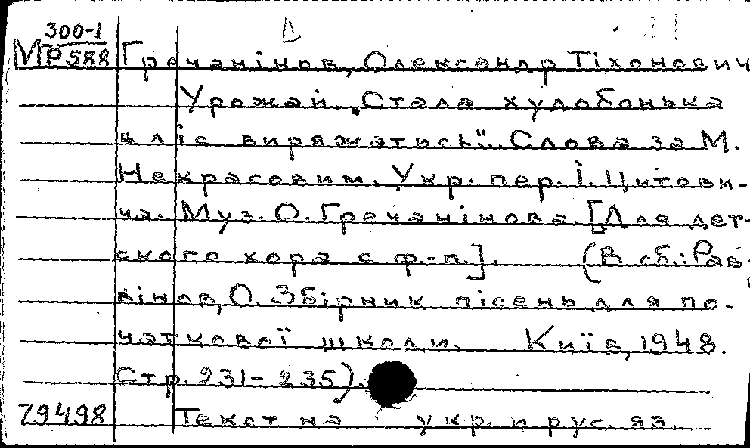 300-1
МР 588 Гречанінов, Олександр Тіхонович
Урожай. „Стала худобонька
в ліс виряжатись". Слова за М.
Некрасовим. Укр. пер. І. Цитови-
ча. Муз. О. Гречанінова [Для дет-
ского хора с ф-п.]. (В сб.: Раб-
інов, О. Збірник пісень для по-
чаткової школи. Київ, 1948.
Стр. 231-235).
79498 Текст на укр. и рус. яз.